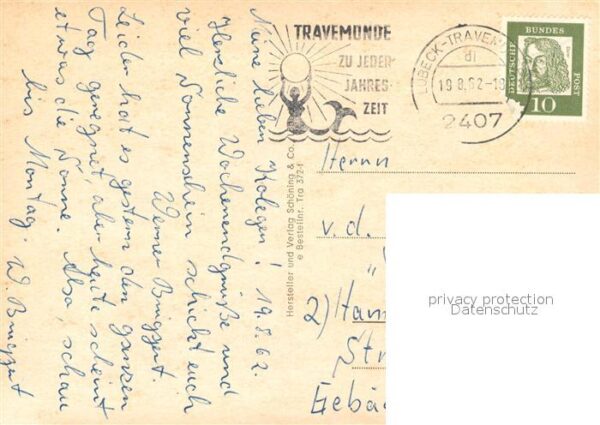 TRAVEMÜNDE
ZU JEDER
JAHRES-
ZEIT
LÜBECK-TRAVEM
19.8.62-19
2407
DEUTSCHE
BUNDES
POST
10
Meine lieben Kolegen! 19.8.62.
Herzliche Wochenendgrüße und
viel Sonnenschein schickt euch
Werner Brüggert.
Leider hat es gestern den ganzen
Tag geregnet, aber heute scheint
etwas die Sonne. Also, schau
bis Montag. W. Brüggert
Hersteller und Verlag Schöning & Co.
Bestellnr. Tra 372
Herrn
v. d.
2) Ham
Str
Gebä
privacy protection
Datenschutz